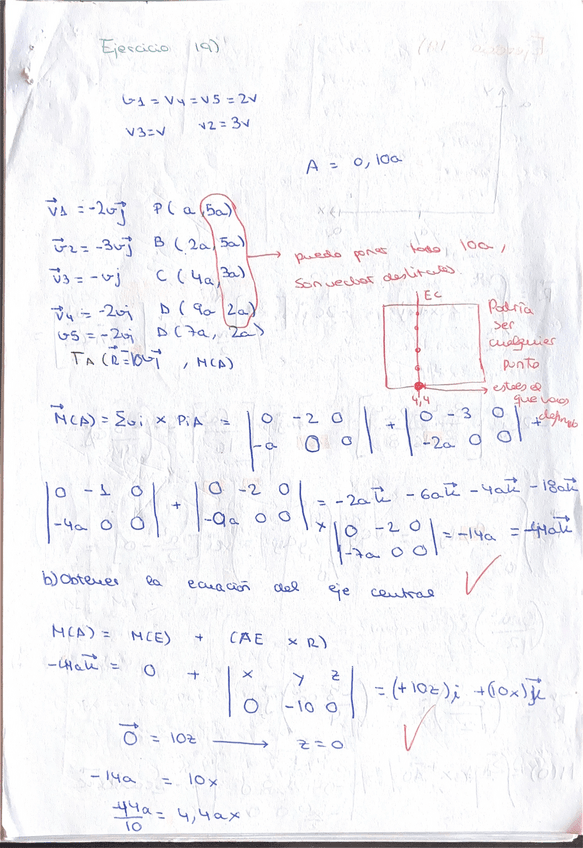 Ejercicio 19)
v1 = v4 = v5 = 2v
v3=v v2 = 3v
A = 0,10a
v⃗1 = -2vj⃗ P( a ,5a)
v⃗2 = -3vj⃗ B ( 2a, 5a)
v⃗3 = -vj⃗ C ( 4a, 3a)
v⃗4 = -2vj D ( 9a 2a)
v5 = -2vj D (7a, 2a)
puedo poner todo, 10a,
son vector deslizales
EC
Podría
ser
cualquier
punto
4,4
este es el
que vaos
depués
M⃗(A) = Σvi × PiA = | 0 -2 0 | + | 0 -3 0 | +
| -a 0 0 | | -2a 0 0 |
| 0 -1 0 | + | 0 -2 0 | = -2ak⃗ - 6ak⃗ - 4ak⃗ - 18ak⃗
| -4a 0 0 | | -9a 0 0 | × | 0 -2 0 | = -14a = -44ak⃗
| -7a 0 0 |
b) Obtener la ecuación del eje central
M(A) = M(E) + (AE × R)
-44ak⃗ = 0 + | x y z | = (+10z)i + (10x)k⃗
| 0 -10 0 |
0⃗ = 10z → z = 0
-14a = 10x
-44a/10 = 4,4ax